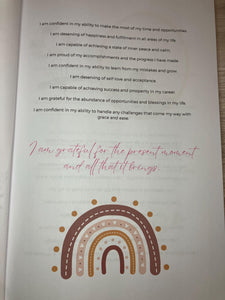 I am confident in my ability to make the most of my time and opportunities.
I am deserving of happiness and fulfillment in all areas of my life.
I am capable of achieving a state of inner peace and calm.
I am proud of my accomplishments and the progress I have made.
I am confident in my ability to learn from my mistakes and grow.
I am deserving of self-love and acceptance.
I am capable of achieving success and prosperity in my career.
I am grateful for the abundance of opportunities and blessings in my life.
I am confident in my ability to handle any challenges that come my way with
grace and ease.
I am grateful for the present moment
and all that it brings.